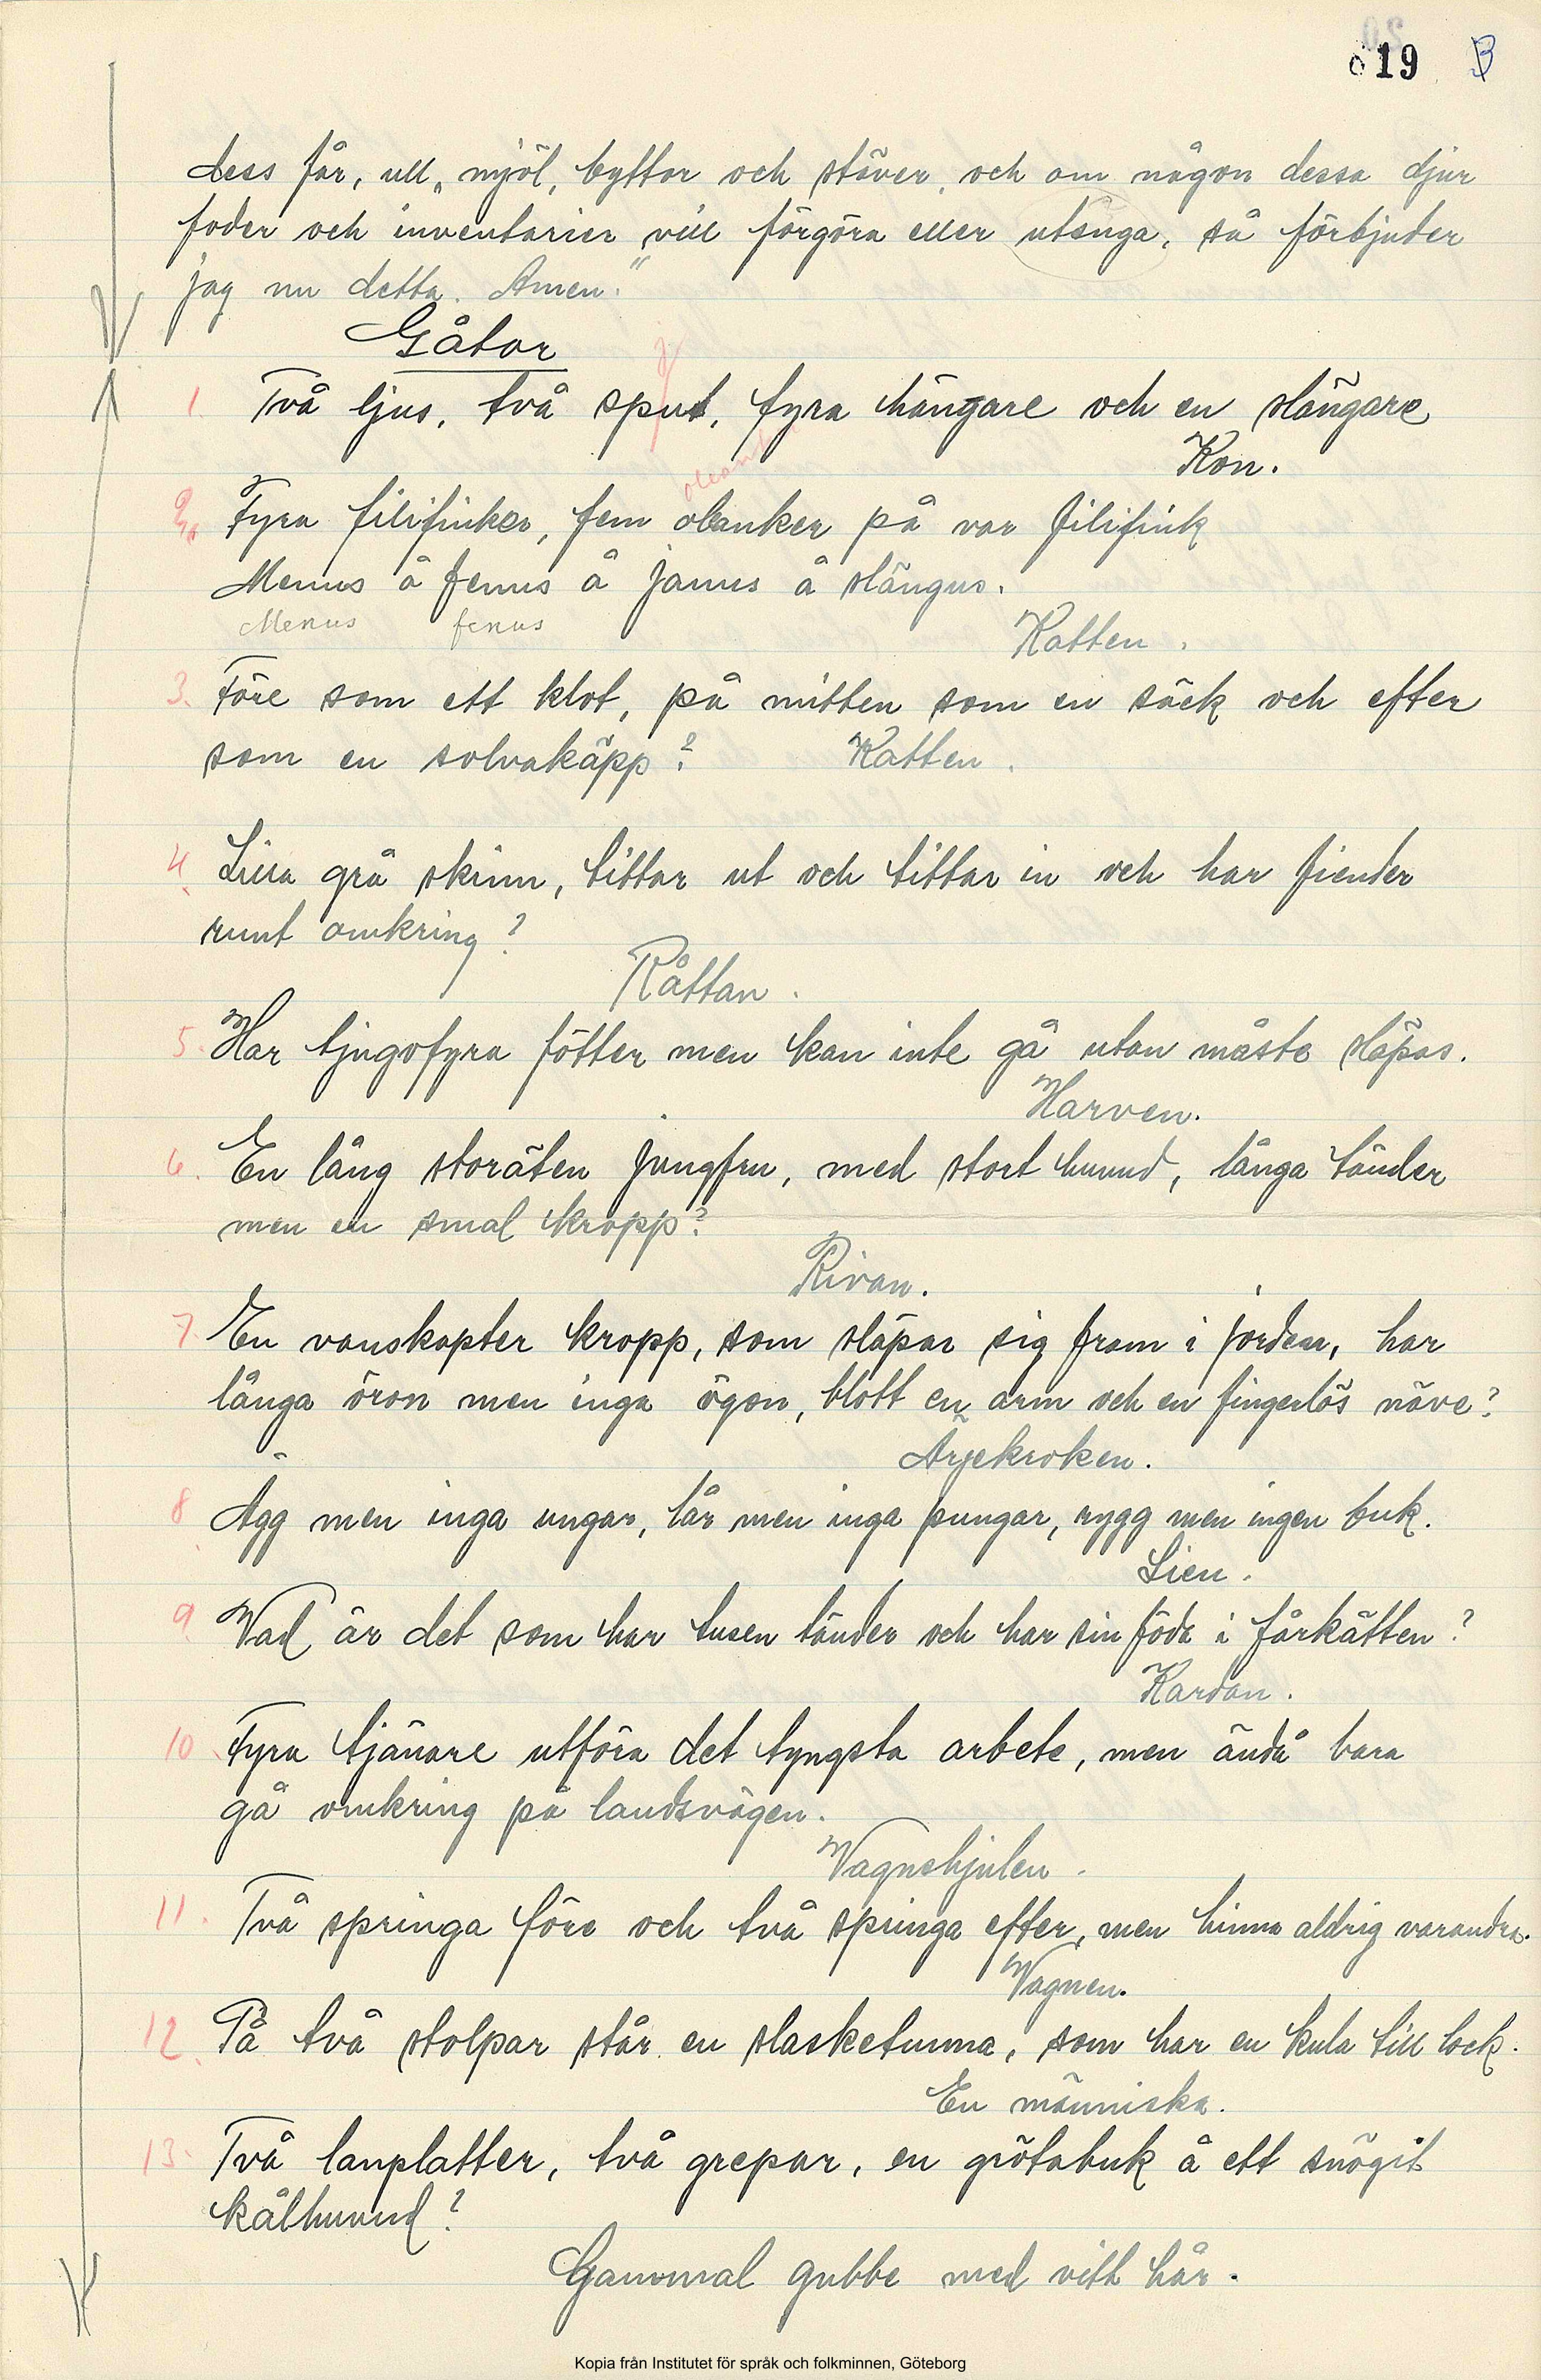 19 B
dess får, ull, mjöl, byttor och stäver, och om någon dessa djur
foder och inventarier vill förgöra eller utsuga, så förbjuder
jag nu detta. Amen."
Gåtor
1. Två ljus, två sput, fyra hängare och en slängare
Kon.
2. Fyra filifinker, fem olanker på var filifink
Menus å fenus å janus å slängus.
Menus fenus
Katten.
3. Före som ett klot, på mitten som en säck och efter
som en solvakäpp? Katten.
4. Lilla grå skinn, tittar ut och tittar in och har fiender
runt omkring?
Råttan.
5. Har tjugofyra fötter men kan inte gå utan måste släpas.
Harven.
6. En lång storäten jungfru, med stort huvud, långa tänder
men en smal kropp?
Rivan.
7. En vanskapter kropp, som släpar sig fram i jorden, har
långa öron men inga ögon, blott en arm och en fingerlös näve?
Arjekroken.
8 Ägg men inga ungar, lår men inga pungar, rygg men ingen buk.
Lien.
9. Vad är det som har tusen tänder och har sin föda i fårkätten?
Kardan.
10. Fyra tjänare utföra det tyngsta arbete, men ändå bara
gå omkring på landsvägen.
Vagnshjulen.
11. Två springa före och två springa efter, men hinna aldrig varandra.
Vagnen.
12. På två stolpar står en slasketunna, som har en kula till lock.
En människa.
13. Två lanplatter, två grepar, en grötabuk å ett snögit
kålhuvud?
Gammal gubbe med vitt hår.
Kopia från Institutet för språk och folkminnen, Göteborg